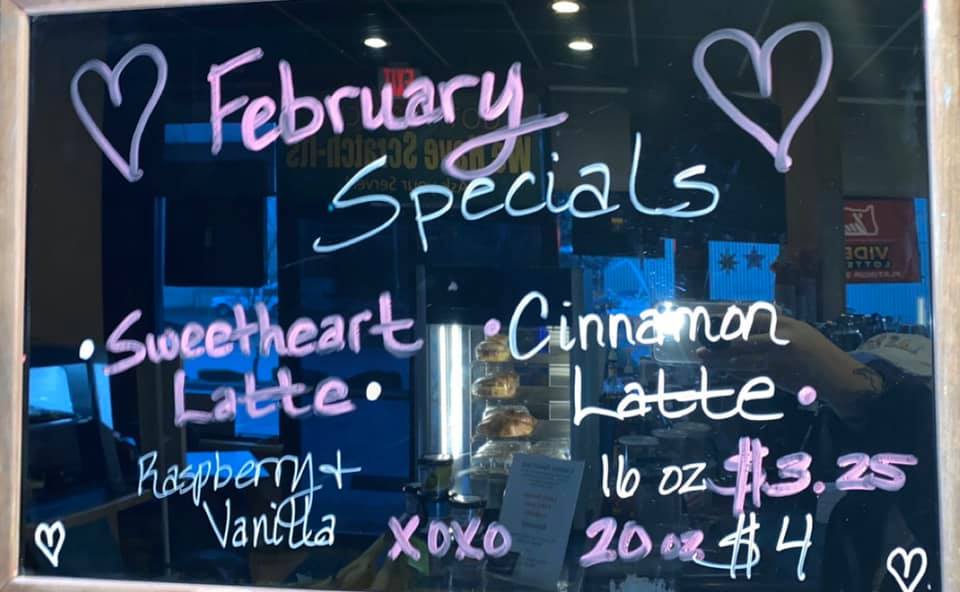 February
Specials
• Sweetheart
Latte •
• Cinnamon
Latte •
Raspberry +
Vanilla
16 oz $3.25
XOXO
20 oz $4
EXIT
We Have Scratch-Its
Ask your Server!
VIDEO
LOTTERY